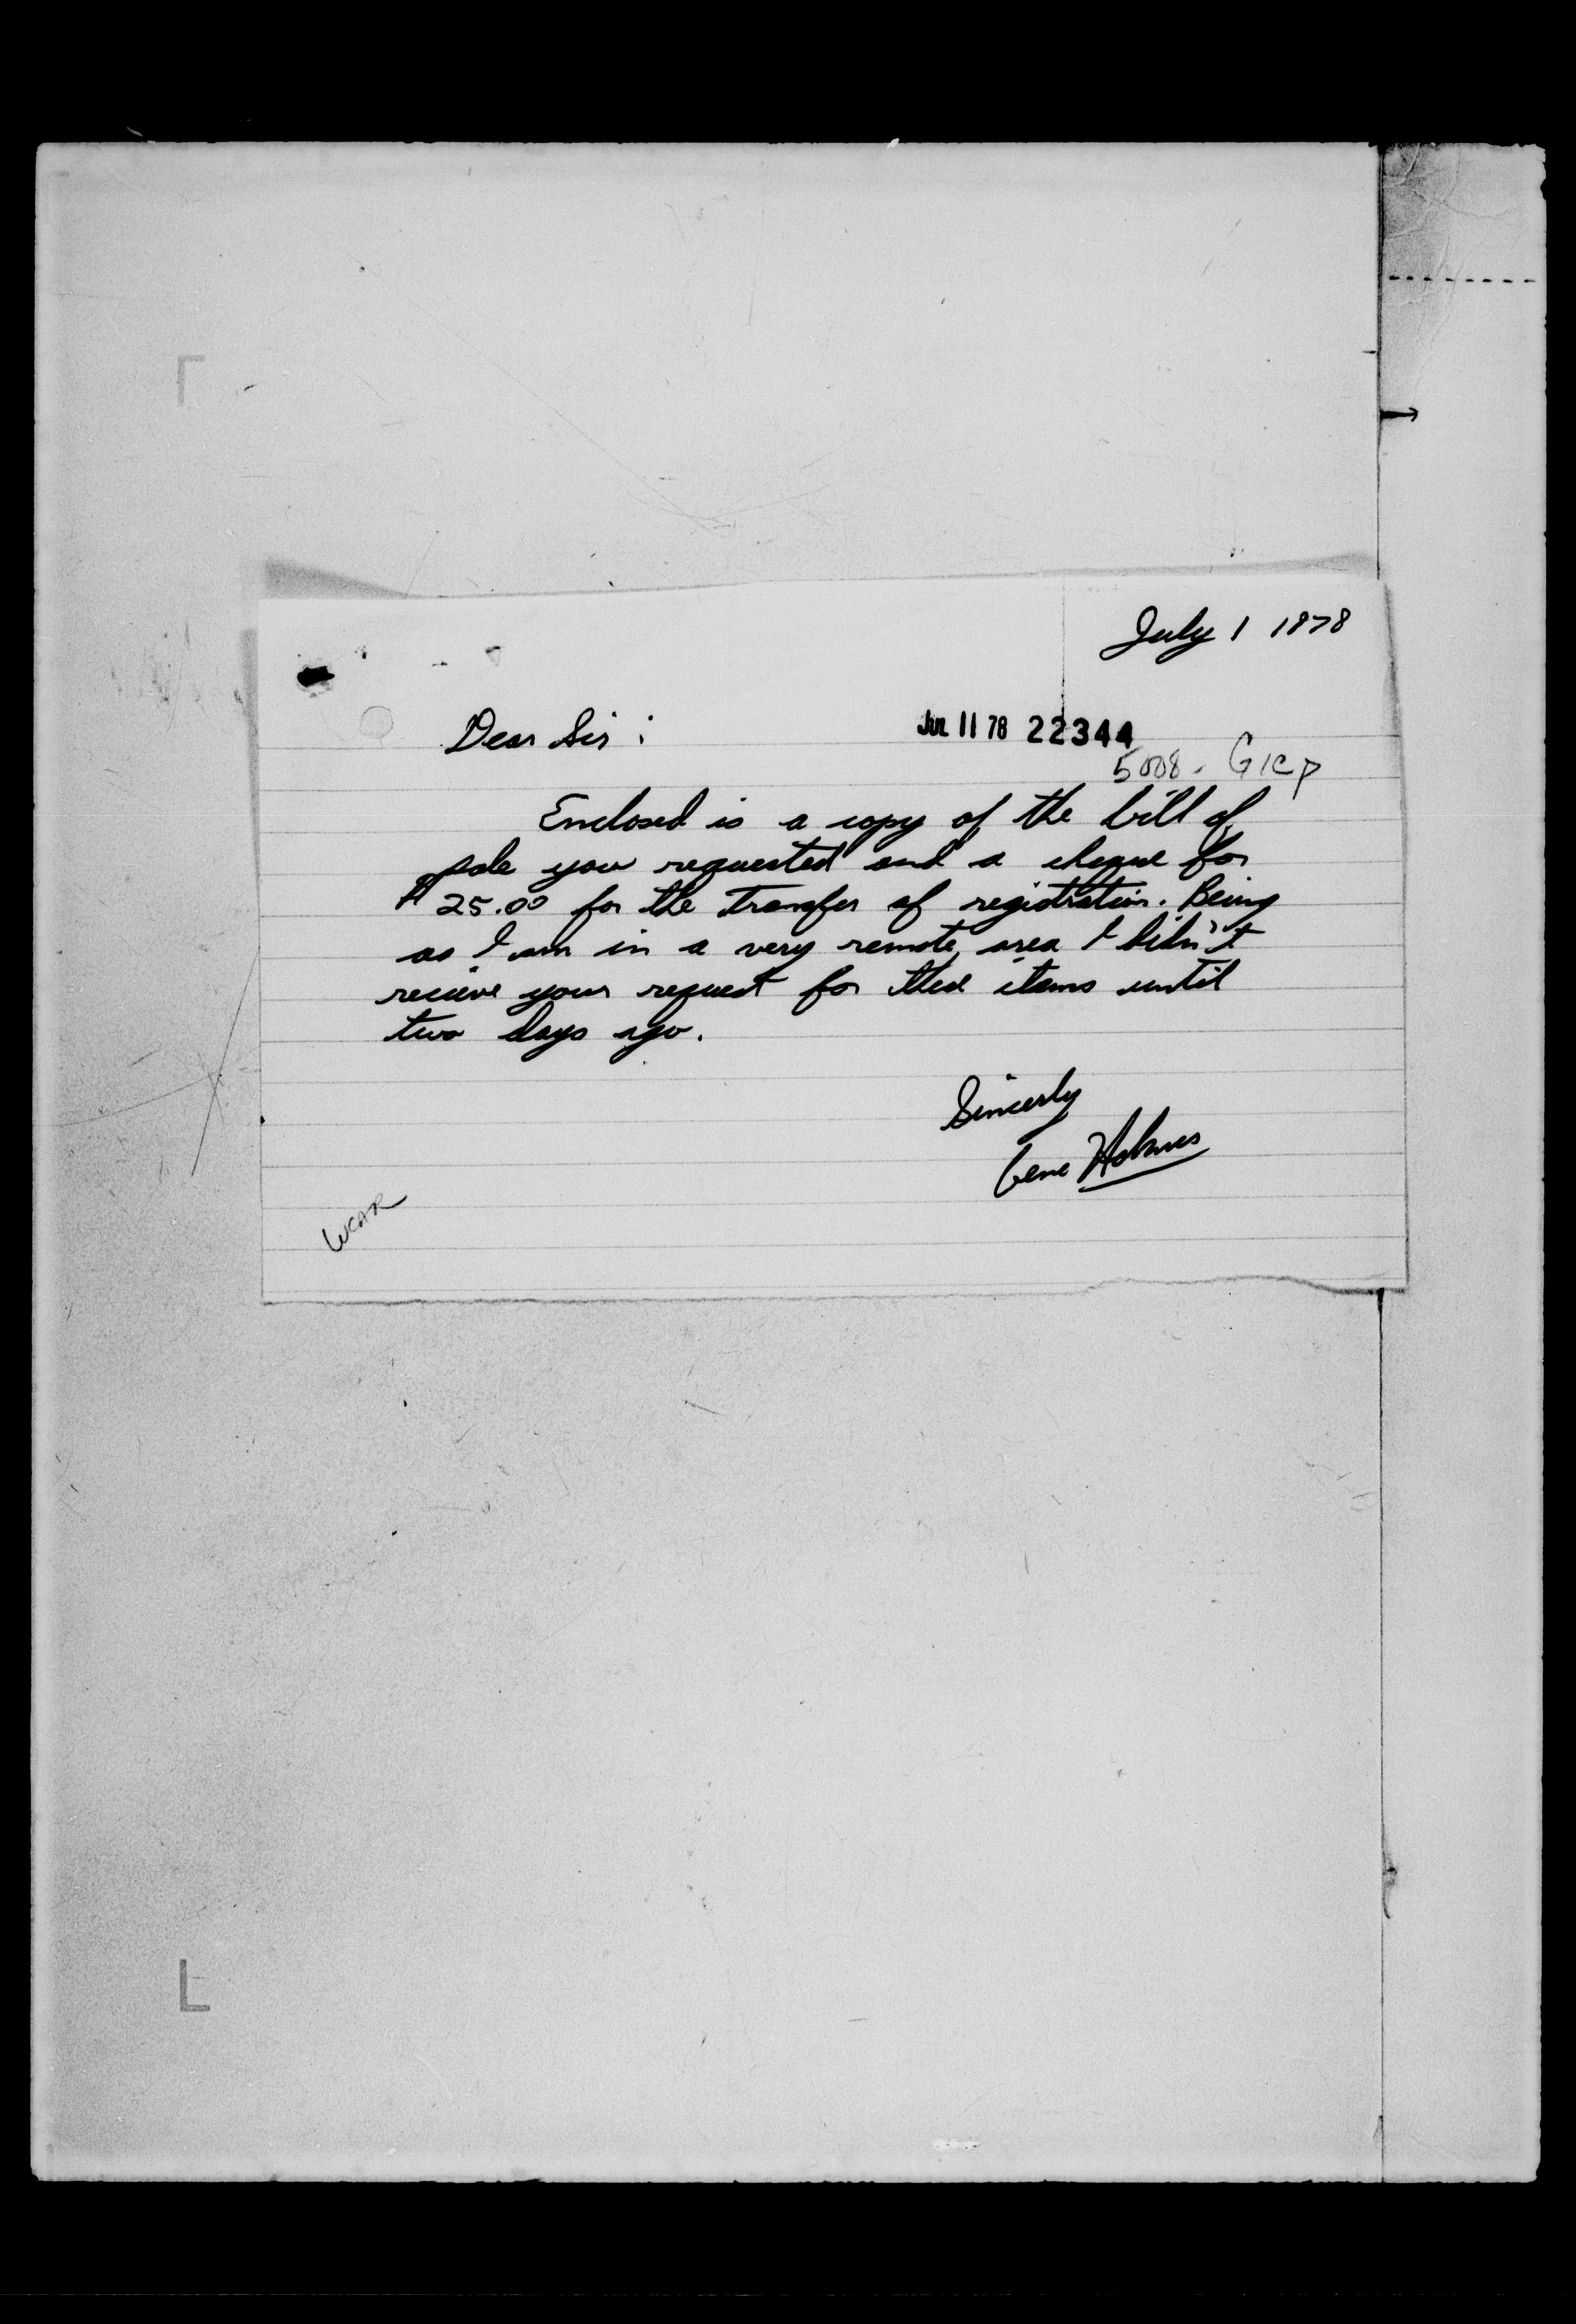 July 1 1878
Dear Sir :
JUL 11 78 22344
5008. G1CP
Enclosed is a copy of the bill of
sale you requested and a cheque for
$25.00 for the transfer of registration. Being
as I am in a very remote area I didn't
recieve your request for thes items until
two days ago.
Sincerly
Gene Holmes
WCAR